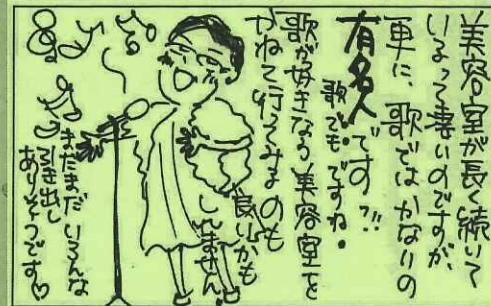 美容室が長く続いて
いるって凄いのですが、
更に、歌ではかないの
有名人です!!
歌でも。ですね。
歌が好きなら美容室を
かねて行ってみるのも
良いかも
しれません。
まだまだいろんな
引き出し
ありそうです♡